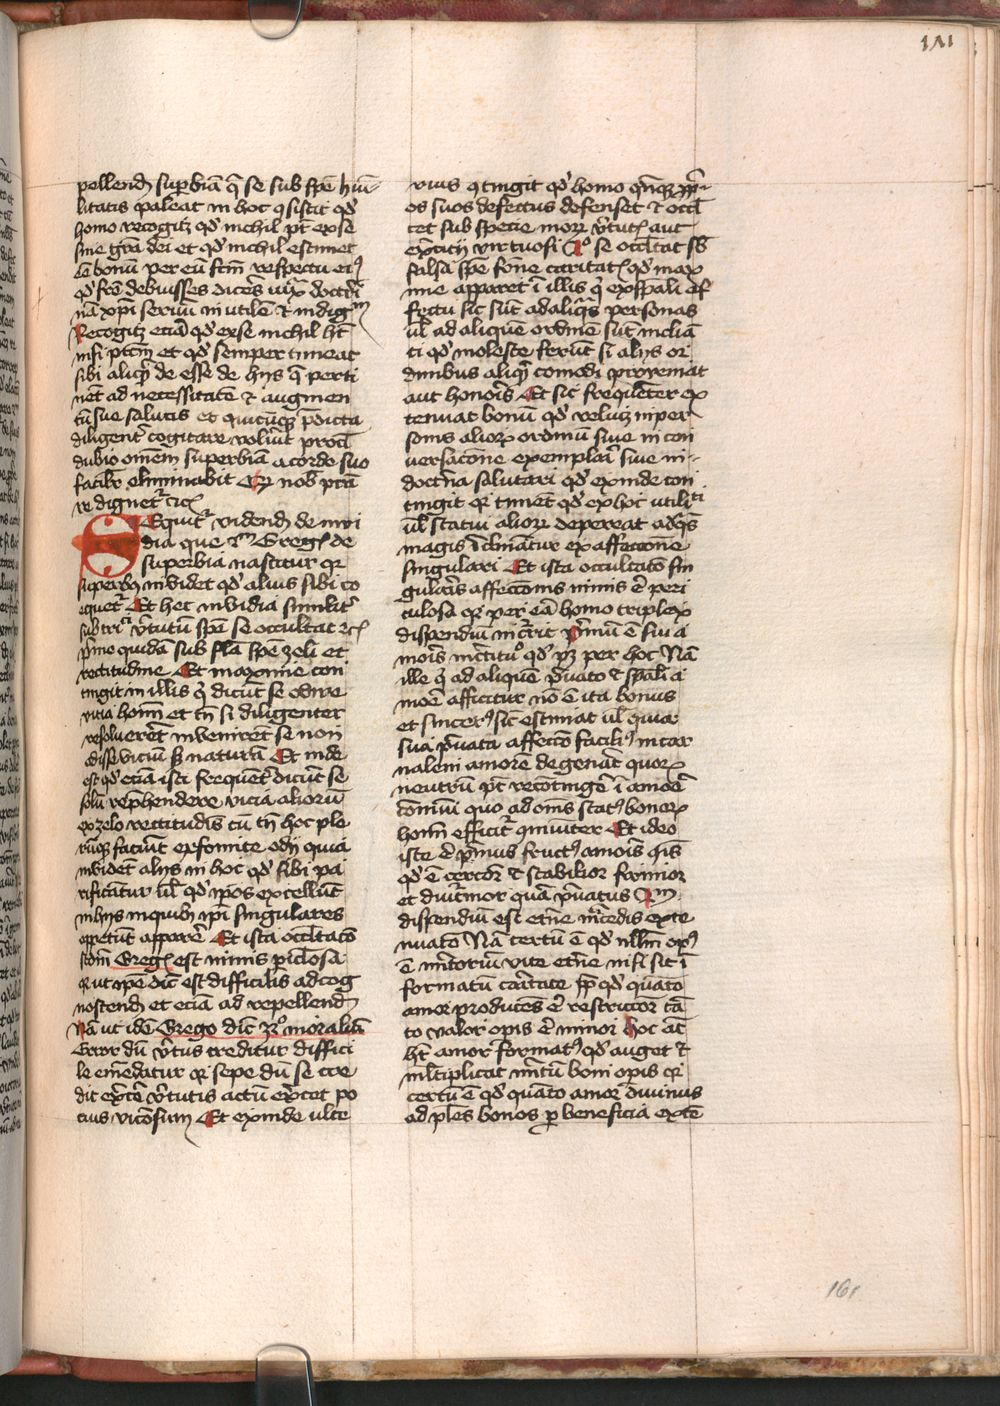 161
pellend superbiā q̄ se sub spē hūi
litatis paleat in hoc ꝯsistit qd̓
homo recogitꝫ qd̓ nichil pt̄ ex se
sine gr̄a dei et qd̓ nichil estimet
bonū per eū fcm̄ respectu eiꝰ
qd̓ fc̄e debuisset dicēs iuxͣ doctri
nā xp̄i seruū inutilē et indignū
Recogitꝫ eciā qd̓ ex se nichil hꝫ
nisi pctm̄ et qd̓ semper timeat
sibi aliqd̓ de esse de hijs q̄ perti
nēt ad necessitatē et augmen
tū sue salutis et quicūqꝫ p̄dicta
diligent̓ cogitare voluīt procl̓
dubio omēm superbiā a corde suo
facilit̓ eliminabit Qd̓ nob̓ pr̄ā
re dignet̓ etc̄
SEquit̓ videnď de inui
dia que scdm̄ Greg̓ de
superbia nascitur qꝛ
superbꝰ invidet qd̓ alius sibi co
equet̓ Et hec invidia similit̓
sub tri v̓tutū spē se occultat etc̄
p̓me quidā sub fl̄a spē zeli et
rectitudine Et maxime con
tingit in illis q̓ dicūt se odire
vitia hoīm et tn̄ si diligenter
resoluerēt invenirēt se non
odisse viciū sꝫ naturā Et inde
est qd̓ eciā isti frequēt̓ dicūt se
solū rep̄hendere vicia aliorū
ex zelo rectitudīs cū tn̄ hoc ple
rūqꝫ faciūt ex fomite odij quia
invidēt alijs in hoc qd̓ sibi pa
rificātur ul̓ qd̓ ip̄os excellūt
in hijs in quibꝰ ip̄i singulares
appetūt apparē Et ista occl̓tacō
scdm̄ Greg̓ est nimis piclosa
qꝛ ut ip̄e dic̄ est difficilis ad cog
noscenď et eciā ad repellenď
Nā ut idē Grego dic̄ moraliū
Error dū v̓tus creditur diffici
le emēdatur qꝛ sepe dū se cre
dit ex̓cē v̓tutis actū ex̓cet po
cius viciosum Et exinde ulte
rius ꝯtingit qd̓ homo qn̄qꝫ ppri
os suos defectus defenset et occl̓
tet sub specie mor̄ v̓tutꝫ aut
ex̓citij virtuosi se occultat sb̓
falsa spē caritatꝫ qd̓ max
ime apparet ī illis q̓ ex spali ef
fectu sic sūt ad aliq̄s personas
ul̓ ad aliquē ordinē sūt inclīa
ti qd̓ moleste ferūt si alijs or
dinibus aliqd̓ comodi proveniat
aut honoris Et sic frequēter ex
tenuat bonū qd̓ relucꝫ in per
sonis alioꝝ ordinū siue in con
versacōne exemplari siue in
doctrīa salutari qd̓ exinde con
tingit qꝛ timēt qd̓ ex hoc utilitati
ul̓ statui alioꝝ depereat ad q̄s
magis īclinātur ex affeccōne
singulari Et ista occultacō sin
gularis affeccōnis nimis ē peri
culosa qꝛ per eā homo triplex
dispendiū incurrit p̓mū ē sui a
moris incertitudo qd̓ pꝫ per hoc Nā
ille q̓ ad aliquē p̓uato et spali a
more afficitur nō ē ita bonus
et sincerꝰ sic estimat ul̓ quia
sua p̓uata affeccō faciliꝰ in car
nalem amorē degenāt quoꝝ
neutrū pt̄ contingere ī amore
cōmuni quo ad omīs statꝰ bonoꝝ
hoīm efficit̓ ꝯmuniter Et ideo
iste ē p̓mus fructꝰ amoris
qd̓ ē cercior et stabilior firmior
et diut̓nior quā p̓uatus
dispendiū est etn̄e m̓cedis exte
nuatō Nā certū ē qd̓ nullū opꝰ
ē m̓itoriū vite etn̄e nisi sit ī
formatū caritate ꝓpt̓ qd̓ quāto
amor producēs ē restrictior tā
to valor opis ē minor Hoc aūt
hꝫ amor formatꝰ qd̓ auget et
ml̓tiplicat m̓itū boni opis qꝛ
certū ē qd̓ quāto amor divinus
ad ples bonos ꝑ beneficia exte
161